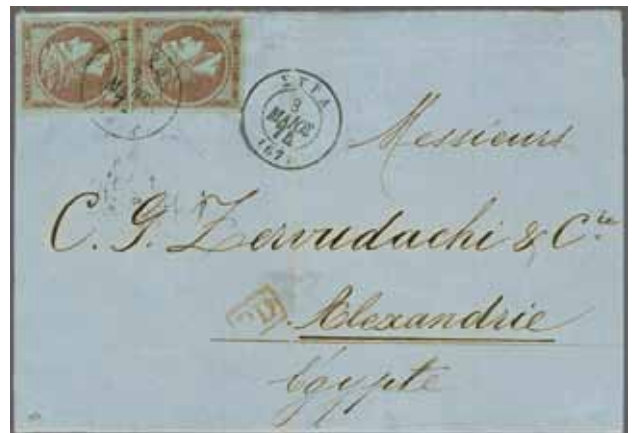 ΣΥΡΑ
8
ΜΑΙΟΣ
74
(67)
Messieurs
C. G. Zervudachi & Cie
Alexandrie
Égypte